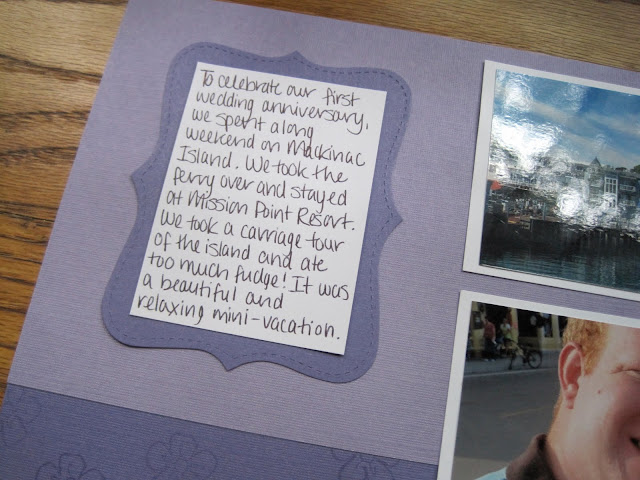 To celebrate our first
wedding anniversary,
we spent along
weekend on Mackinac
Island. We took the
ferry over and stayed
at Mission Point Resort.
We took a carriage tour
of the island and ate
too much fudge! It was
a beautiful and
relaxing mini-vacation.